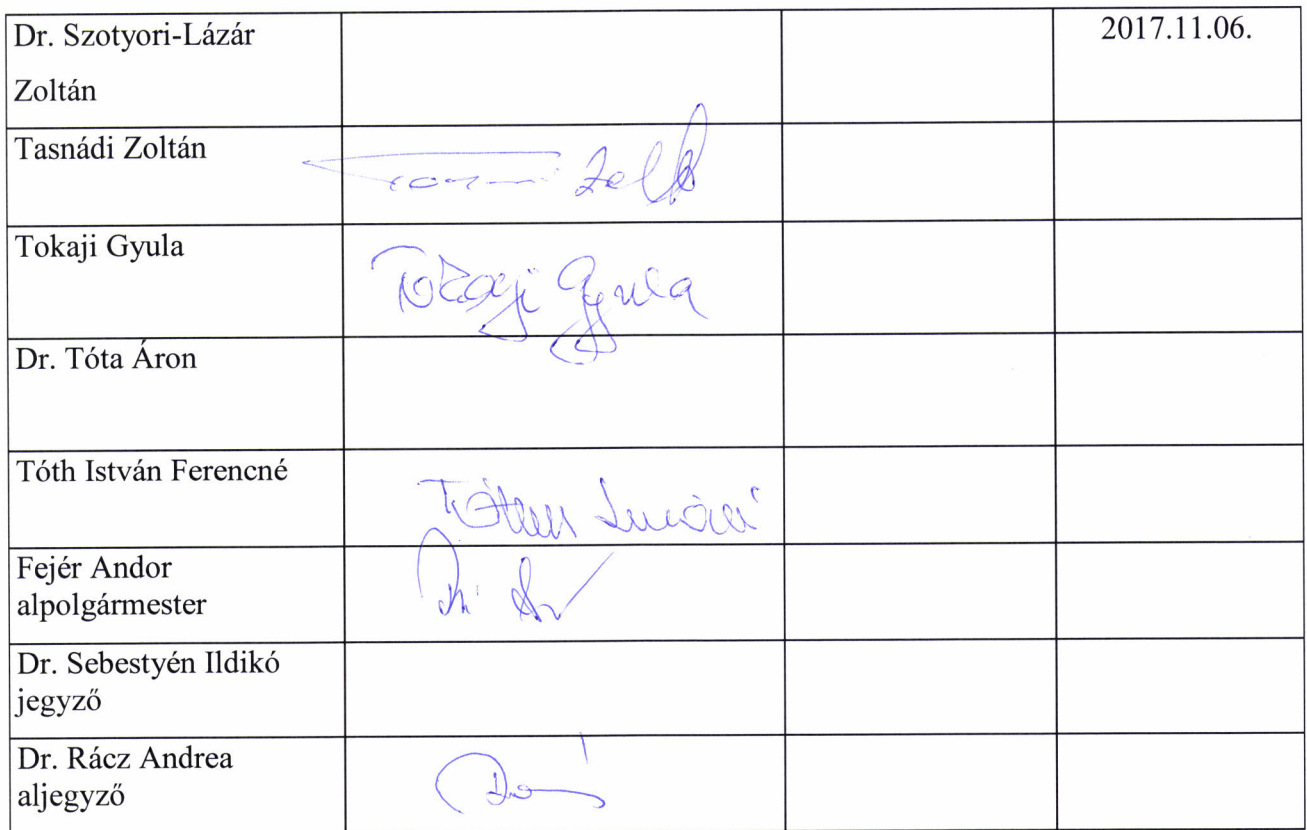 Dr. Szotyori-Lázár
Zoltán
2017.11.06.
Tasnádi Zoltán
Tokaji Gyula
Tokaji Gyula
Dr. Tóta Áron
Tóth István Ferencné
Fejér Andor
alpolgármester
Dr. Sebestyén Ildikó
jegyző
Dr. Rácz Andrea
aljegyző